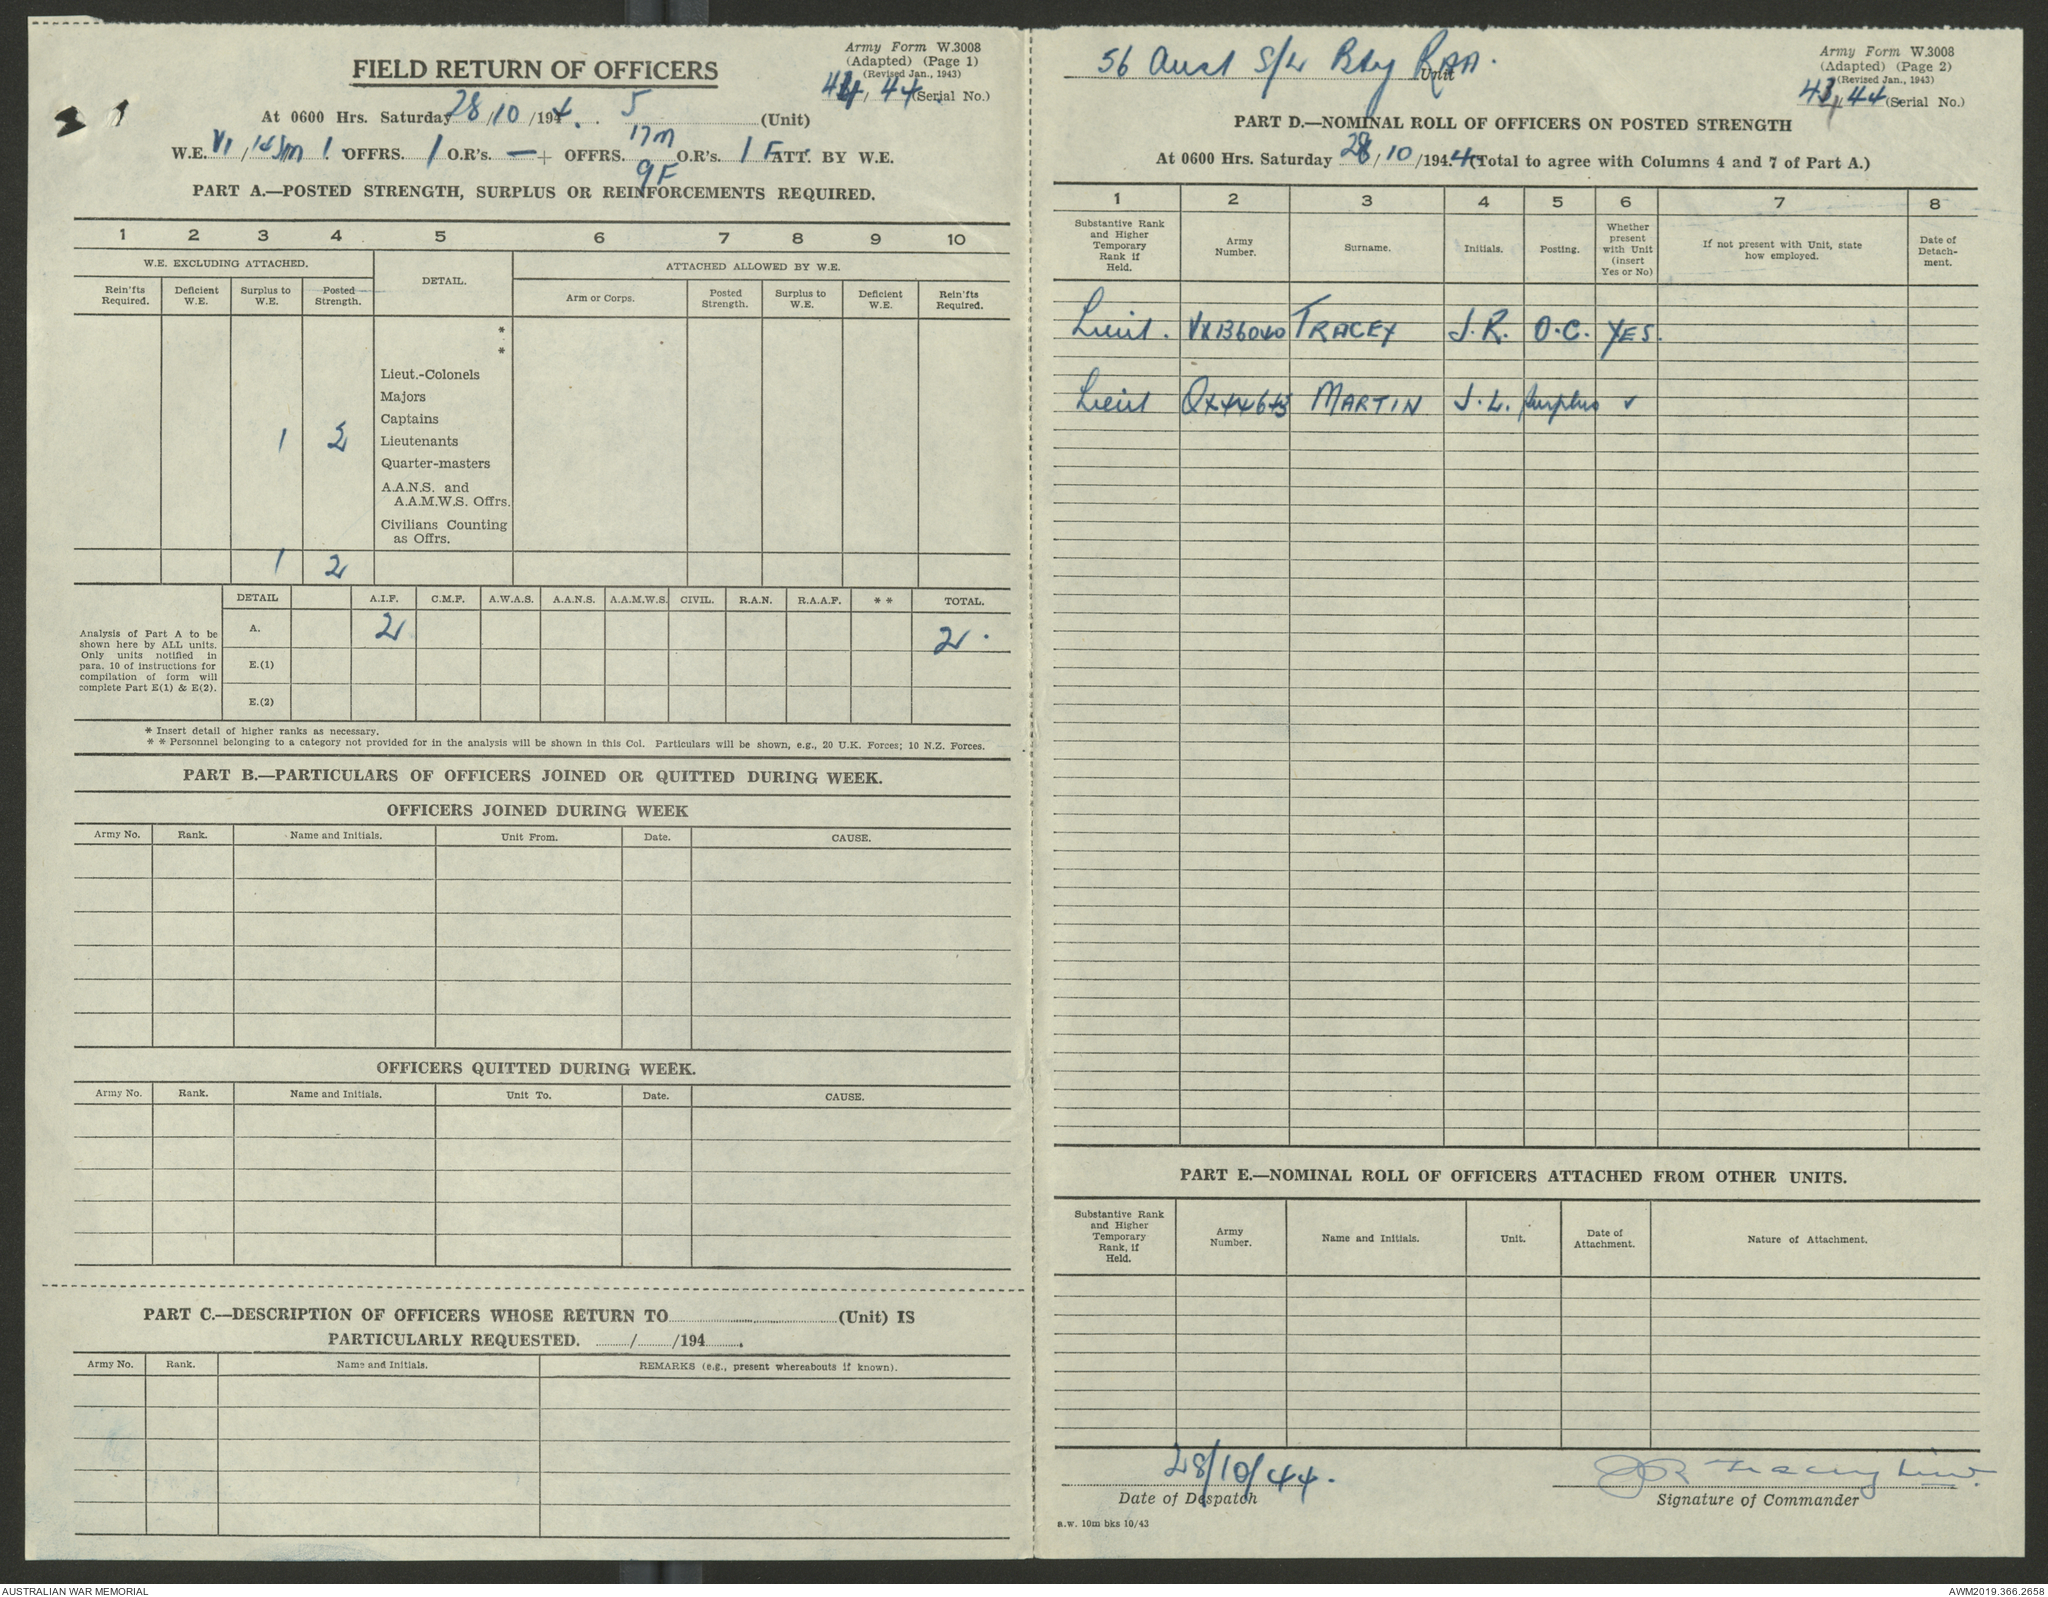 FIELD RETURN OF OFFICERS
Army Form W.3008
(Adapted) (Page 1)
(Revised Jan., 1943)
44 (Serial No.)
At 0600 Hrs. Saturday 28/10/1944. 5 (Unit)
17 M
W.E. VI / OFFRS. 1 O.R's. — + OFFRS. O.R's. 1 F ATT. BY W.E.
9F
PART A.—POSTED STRENGTH, SURPLUS OR REINFORCEMENTS REQUIRED.
1 2 3 4 5 6 7 8 9 10
W.E. EXCLUDING ATTACHED. DETAIL. ATTACHED ALLOWED BY W.E.
Rein'fts Required. Deficient W.E. Surplus to W.E. Posted Strength. Arm or Corps. Posted Strength. Surplus to W.E. Deficient W.E. Rein'fts Required.
*
*
Lieut.-Colonels
Majors
Captains
1 2 Lieutenants
Quarter-masters
A.A.N.S. and
A.A.M.W.S. Offrs.
Civilians Counting
as Offrs.
1 2
DETAIL A.I.F. C.M.F. A.W.A.S. A.A.N.S. A.A.M.W.S. CIVIL. R.A.N. R.A.A.F. * * TOTAL.
Analysis of Part A to be
shown here by ALL units.
Only units notified in
para. 10 of instructions for
compilation of form will
complete Part E(1) & E(2).
A. 2 2.
E.(1)
E.(2)
* Insert detail of higher ranks as necessary.
* * Personnel belonging to a category not provided for in the analysis will be shown in this Col. Particulars will be shown, e.g., 20 U.K. Forces; 10 N.Z. Forces.
PART B.—PARTICULARS OF OFFICERS JOINED OR QUITTED DURING WEEK.
OFFICERS JOINED DURING WEEK
Army No. Rank. Name and Initials. Unit From. Date. CAUSE.
OFFICERS QUITTED DURING WEEK.
Army No. Rank. Name and Initials. Unit To. Date. CAUSE.
PART C.—DESCRIPTION OF OFFICERS WHOSE RETURN TO (Unit) IS
PARTICULARLY REQUESTED. / /194 .
Army No. Rank. Name and Initials. REMARKS (e.g., present whereabouts if known).
56 Aust S/L Bty RAA. Unit
Army Form W.3008
(Adapted) (Page 2)
(Revised Jan., 1943)
44 (Serial No.)
PART D.—NOMINAL ROLL OF OFFICERS ON POSTED STRENGTH
At 0600 Hrs. Saturday 28/10/1944 (Total to agree with Columns 4 and 7 of Part A.)
1 2 3 4 5 6 7 8
Substantive Rank and Higher Temporary Rank if Held. Army Number. Surname. Initials. Posting. Whether present with Unit (insert Yes or No) If not present with Unit, state how employed. Date of Detach-ment.
Lieut. VX136040 TRACEY J.R. O.C. YES.
Lieut MARTIN J.L. Surplus ✓
PART E.—NOMINAL ROLL OF OFFICERS ATTACHED FROM OTHER UNITS.
Substantive Rank and Higher Temporary Rank, if Held. Army Number. Name and Initials. Unit. Date of Attachment. Nature of Attachment.
28/10/44. JR Tracey Lieut.
Date of Despatch Signature of Commander
a.w. 10m bks 10/43
AUSTRALIAN WAR MEMORIAL AWM2019.366.2658